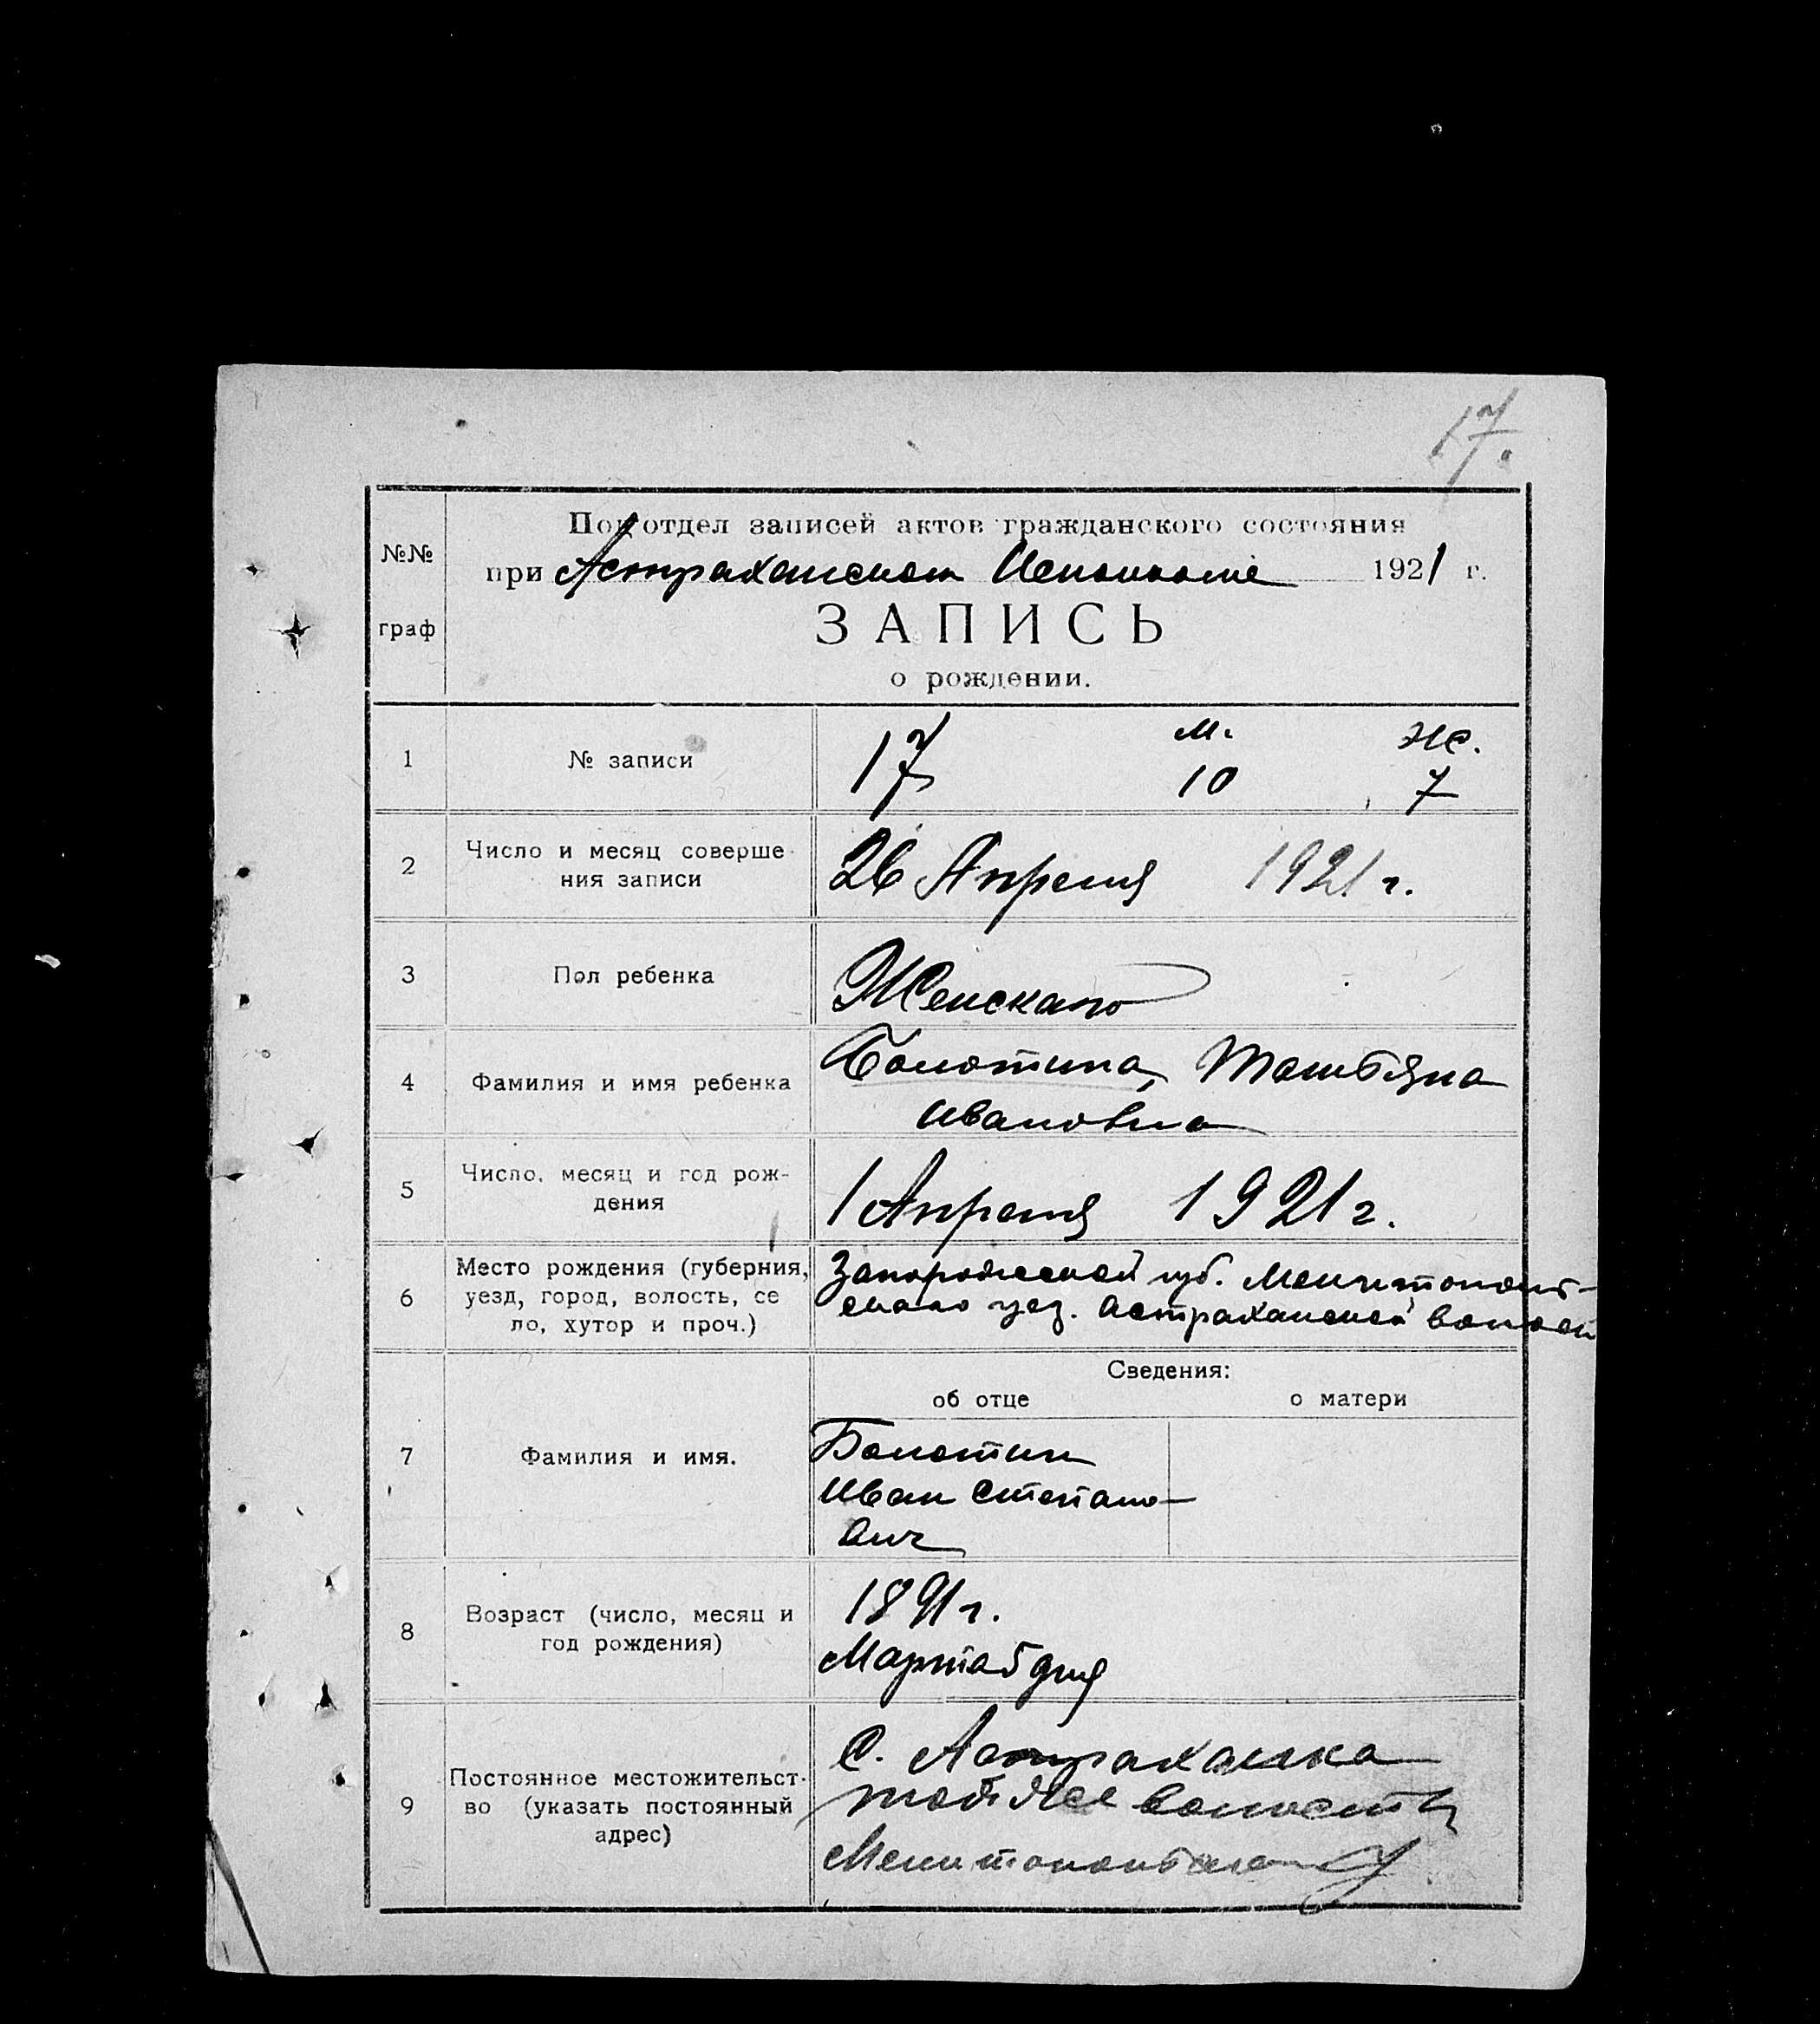 17.
№№ граф
Подотдел записей актов гражданского состояния
при Астраханском Исполкоме 1921 г.
ЗАПИСЬ
о рождении.
1 № записи 17 м. 10 ж. 7
2 Число и месяц соверше
ния записи
26 Апреля 1921 г.
3 Пол ребенка Женскаго
4 Фамилия и имя ребенка
Болотина,
Ивановна
5 Число, месяц и год рож-
дения
1 Апреля 1921 г.
6 Место рождения (губерния,
уезд, город, волость, се
ло, хутор и проч.)
Запорожской губ. Мелитополь-
скаго уез. Астраханской волости
Сведения:
об отце о матери
7 Фамилия и имя.
Болотин
Иван Степано-
вич
8 Возраст (число, месяц и
год рождения)
1891 г.
Марта 5 дня
9 Постоянное местожительст-
во (указать постоянный
адрес)
С. Астраханка
той же волости
Мелитопольскаго У